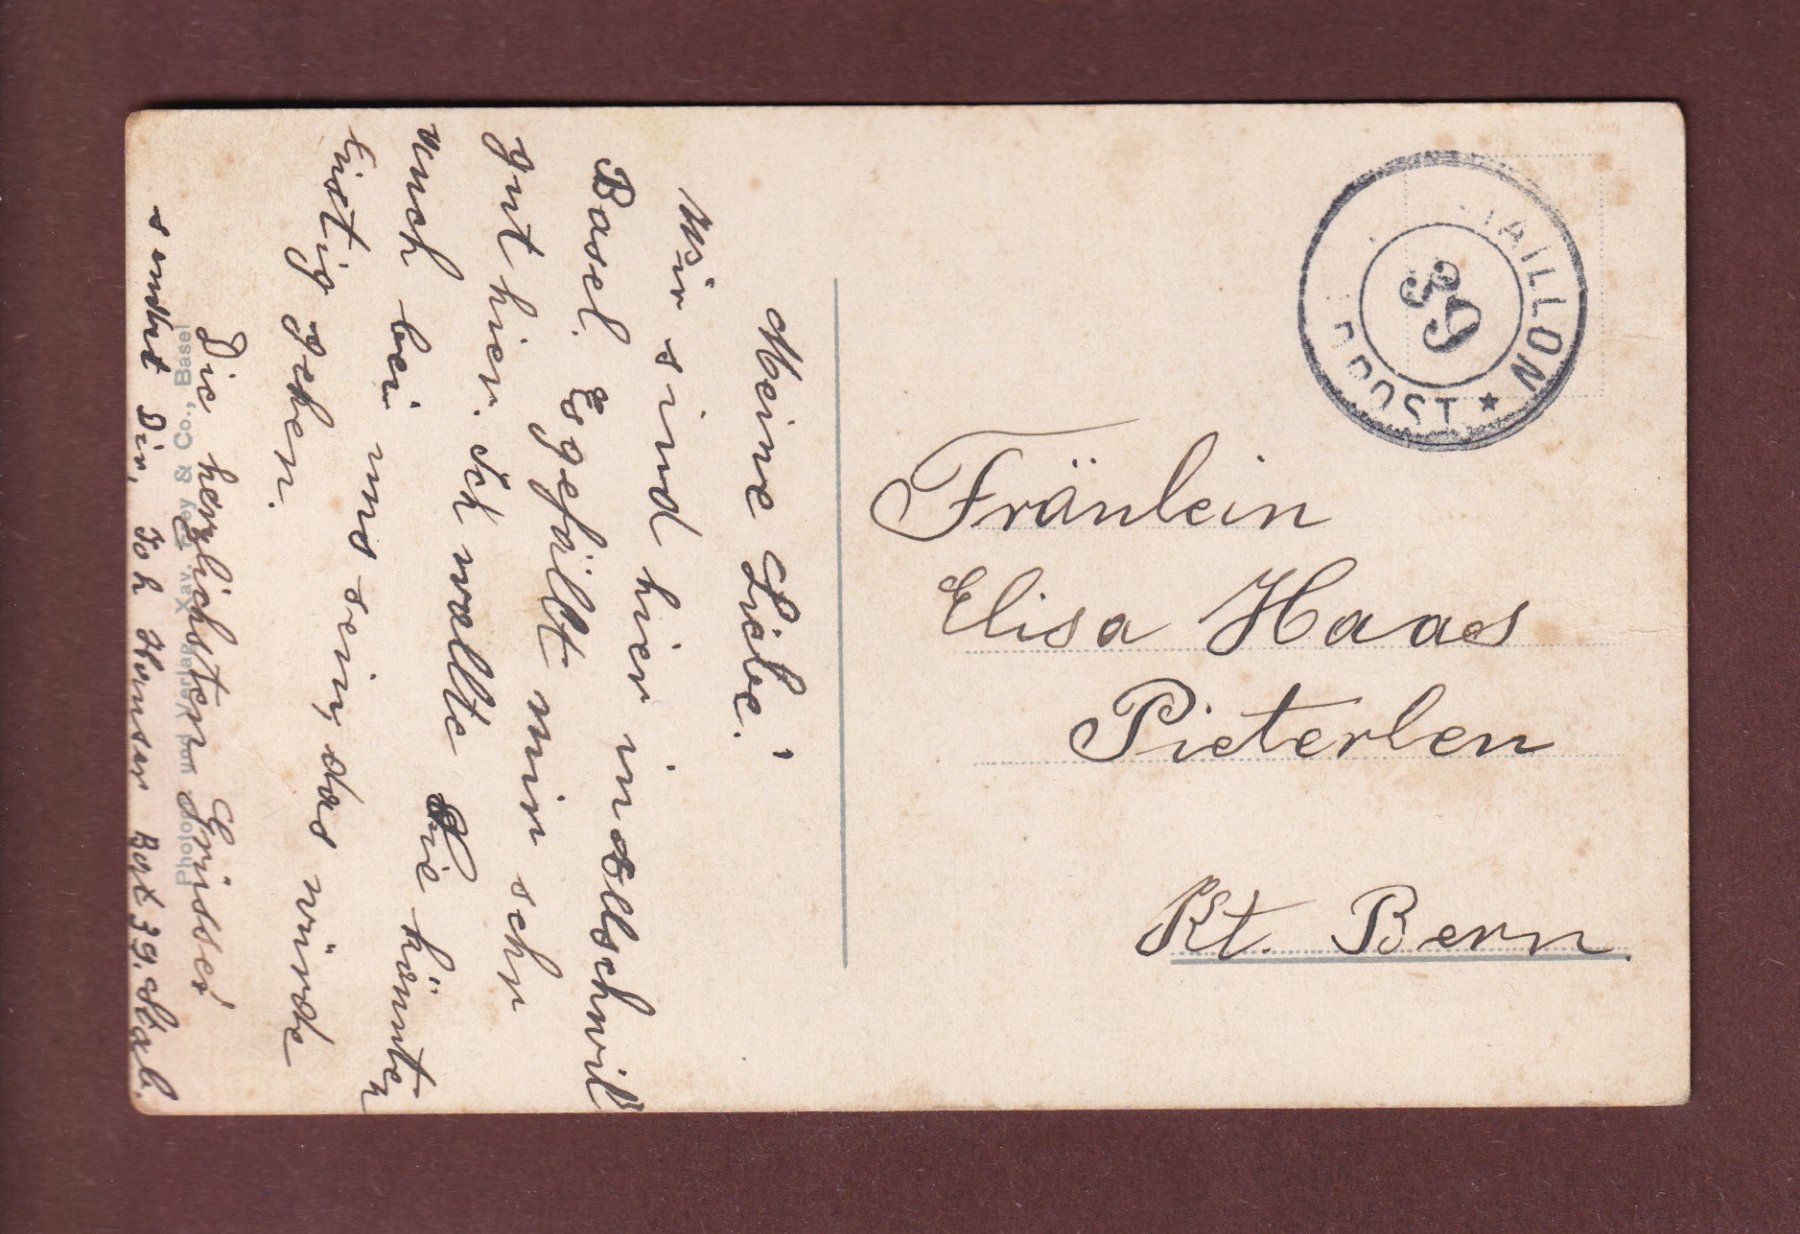 Meine Liebe!
Wir sind hier in Allschwil
Basel. Es gefällt mir sehr
gut hier. Ich wollte Sie könnten
auch bei uns sein, das würde
lustig gehen.
Die herzlichsten Grüsse
sendet Dir, Joh Bat 39.
Photogr. und Verlag Xav. Frey & Co., Basel
BATAILLON
39
POST
Fräulein
Elisa Haas
Pieterlen
Kt. Bern.